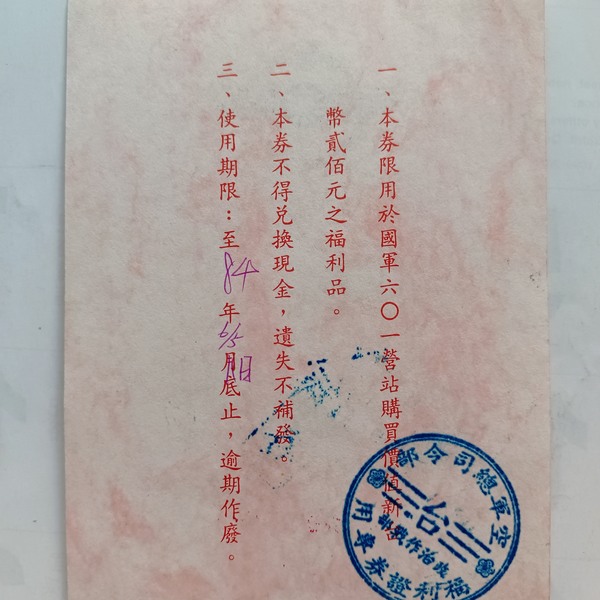 一、本券限用於國軍六〇一營站購買價值新台
幣貳佰元之福利品。
二、本券不得兌換現金，遺失不補發。
三、使用期限：至84年6/5月底止，逾期作廢。
日
空軍總司令部
政治作戰部
福利證券專用